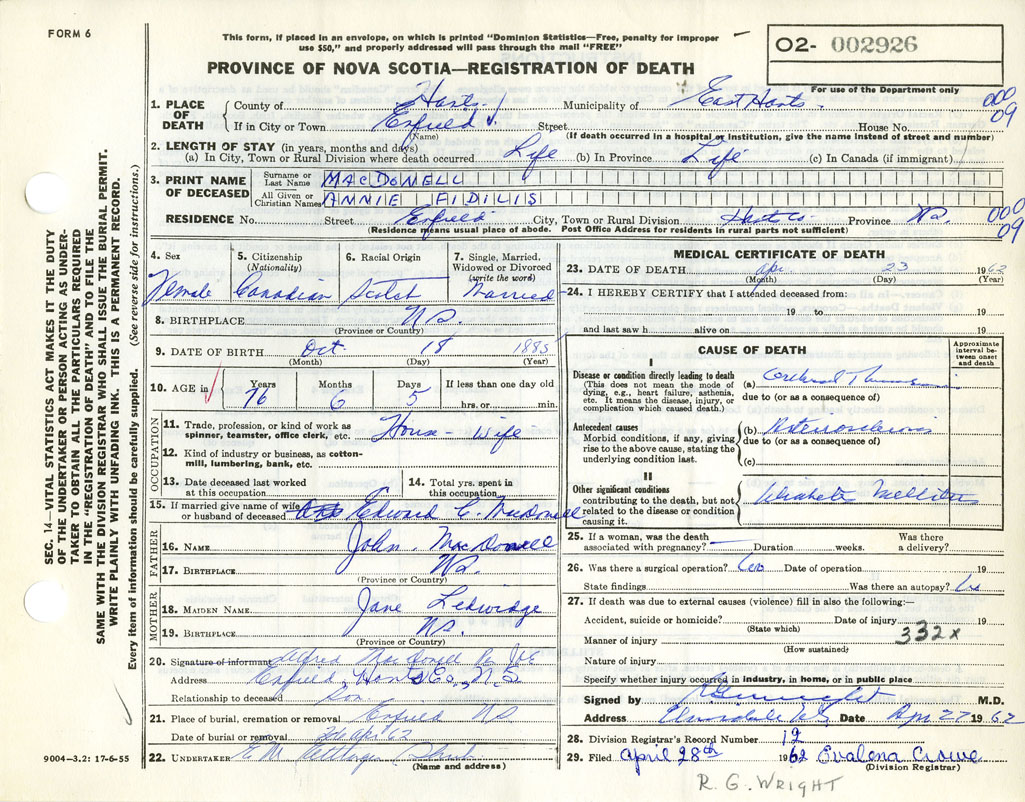 FORM 6
This form, if placed in an envelope, on which is printed "Dominion Statistics—Free, penalty for improper
use $50," and properly addressed will pass through the mail "FREE"
02- 002926
PROVINCE OF NOVA SCOTIA—REGISTRATION OF DEATH
For use of the Department only
1. PLACE OF DEATH County of Hants Municipality of East Hants
If in City or Town Enfield Street House No.
(Name) (If death occurred in a hospital or institution, give the name instead of street and number)
000
09
2. LENGTH OF STAY (in years, months and days)
(a) In City, Town or Rural Division where death occurred Life (b) In Province Life (c) In Canada (if immigrant)
3. PRINT NAME OF DECEASED
Surname or Last Name MACDONELL
All Given or Christian Names ANNIE FIDILIS
RESIDENCE No. Street Enfield City, Town or Rural Division Hants Co Province NS
(Residence means usual place of abode. Post Office Address for residents in rural parts not sufficient)
000
09
4. Sex Female
5. Citizenship (Nationality) Canadian
6. Racial Origin Scotch
7. Single, Married, Widowed or Divorced (write the word) Married
8. BIRTHPLACE NS.
(Province or Country)
9. DATE OF BIRTH Oct 18 1885
(Month) (Day) (Year)
10. AGE in Years Months Days If less than one day old
76 6 5 hrs. or min.
OCCUPATION
11. Trade, profession, or kind of work as spinner, teamster, office clerk, etc. House-Wife
12. Kind of industry or business, as cotton-mill, lumbering, bank, etc.
13. Date deceased last worked at this occupation
14. Total yrs. spent in this occupation
15. If married give name of wife or husband of deceased Edward C. Macdonell
FATHER
16. NAME John MacDonell
17. BIRTHPLACE NS.
(Province or Country)
MOTHER
18. MAIDEN NAME Jane Ledwidge
19. BIRTHPLACE NS.
(Province or Country)
20. Signature of informant Alfred MacDonell
Address Enfield, Hants Co., N.S.
Relationship to deceased Son
21. Place of burial, cremation or removal Enfield NS
Date of burial or removal Apr 62
22. UNDERTAKER E.M.
(Name and address)
MEDICAL CERTIFICATE OF DEATH
23. DATE OF DEATH Apr. 23 1962
(Month) (Day) (Year)
24. I HEREBY CERTIFY that I attended deceased from:
19 to 19
and last saw h alive on 19
CAUSE OF DEATH
Approximate interval between onset and death
I
Disease or condition directly leading to death (a) Cerebral
(This does not mean the mode of dying, e.g., heart failure, asthenia, etc. It means the disease, injury, or complication which caused death.)
due to (or as a consequence of)
Antecedent causes (b)
Morbid conditions, if any, giving rise to the above cause, stating the underlying condition last.
due to (or as a consequence of)
(c)
II
Other significant conditions
contributing to the death, but not related to the disease or condition causing it.
25. If a woman, was the death associated with pregnancy? — Duration weeks. Was there a delivery?
26. Was there a surgical operation? Date of operation 19
State findings Was there an autopsy?
27. If death was due to external causes (violence) fill in also the following:—
Accident, suicide or homicide? Date of injury 19
(State which)
332x
Manner of injury
(How sustained)
Nature of injury
Specify whether injury occurred in industry, in home, or in public place
Signed by M.D.
Address Date Apr 27 1962
28. Division Registrar's Record Number 12
29. Filed April 28th 1962 Evalena Crowe
(Division Registrar)
R. G. WRIGHT
9004—3.2: 17-6-55
SEC. 14—VITAL STATISTICS ACT MAKES IT THE DUTY
OF THE UNDERTAKER OR PERSON ACTING AS UNDER-
TAKER TO OBTAIN ALL THE PARTICULARS REQUIRED
IN THE "REGISTRATION OF DEATH" AND TO FILE THE
SAME WITH THE DIVISION REGISTRAR WHO SHALL ISSUE THE BURIAL PERMIT.
WRITE PLAINLY WITH UNFADING INK. THIS IS A PERMANENT RECORD.
Every item of information should be carefully supplied. (See reverse side for instructions.)